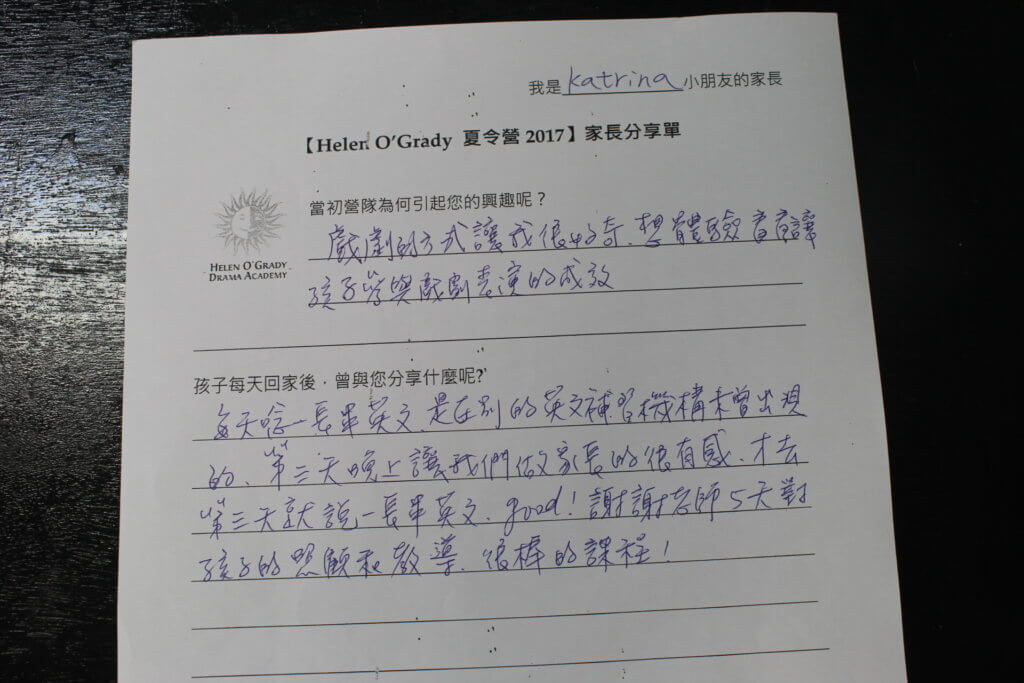 我是 Katrina 小朋友的家長
【Helen O'Grady 夏令營 2017】家長分享單
HELEN O'GRADY
DRAMA ACADEMY
當初營隊為何引起您的興趣呢？
戲劇的方式讓我很好奇、想體驗看看讓
孩子參與戲劇表演的成效
孩子每天回家後，曾與您分享什麼呢?
每天唸一長串英文、是在別的英文補習機構未曾出現
的、第三天晚上讓我們做家長的很有感、才去
第三天就說一長串英文、good！謝謝老師5天對
孩子的照顧和教導、很棒的課程！